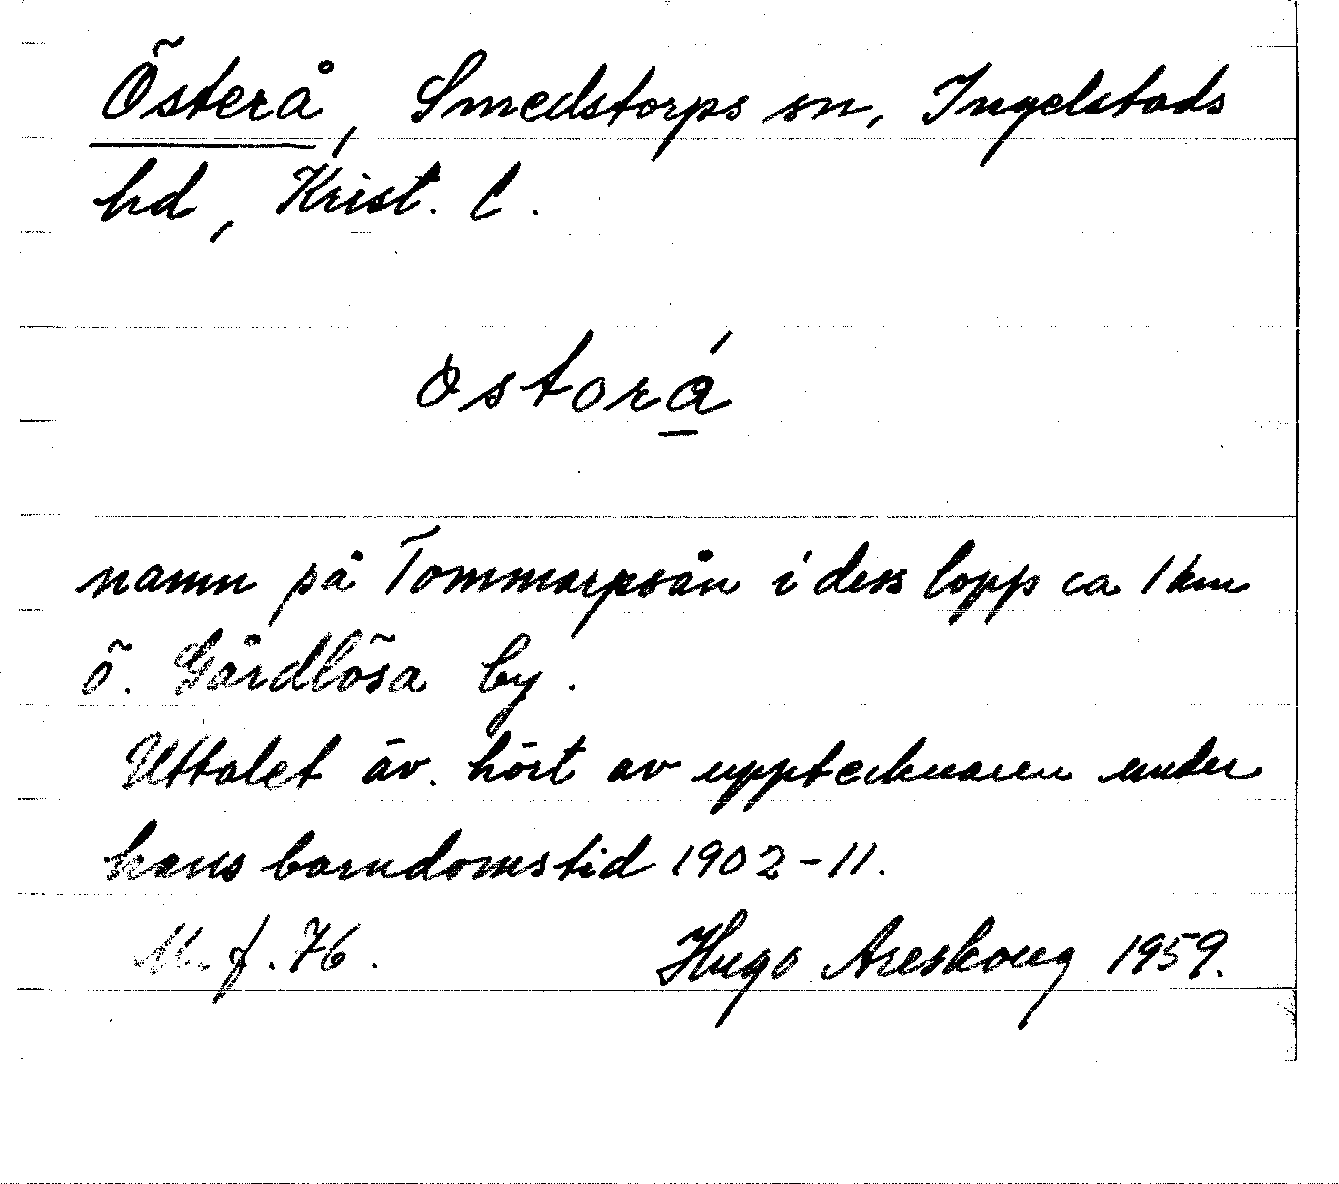 Österå, Smedstorps sn, Ingelstads
hd, Krist. l.
østorá
namn på Tommarpsån i dess lopp ca 1 km
ö. Gårdlösa by.
Uttalet äv. hört av upptecknaren under
hans barndomstid 1902-11.
M. f. 76. Hugo Areskoug 1959.